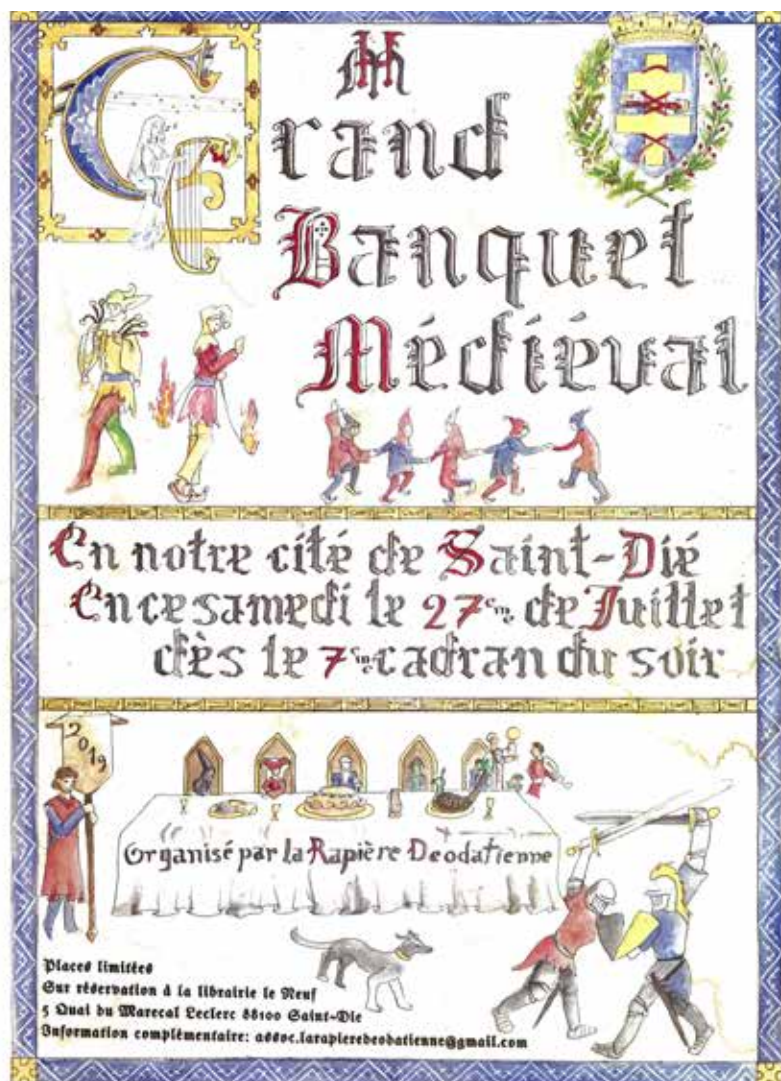 Grand
Banquet
Médiéval
En notre cité de Saint-Dié
En ce samedi le 27em de Juillet
dès le 7em cadran du soir
2019
Organisé par la Rapière Deodatienne
Places limitées
Sur réservation à la librairie le Neuf
5 Quai du Marecal Leclerc 88100 Saint-Die
Information complémentaire: assoc.larapieredeodatienne@gmail.com